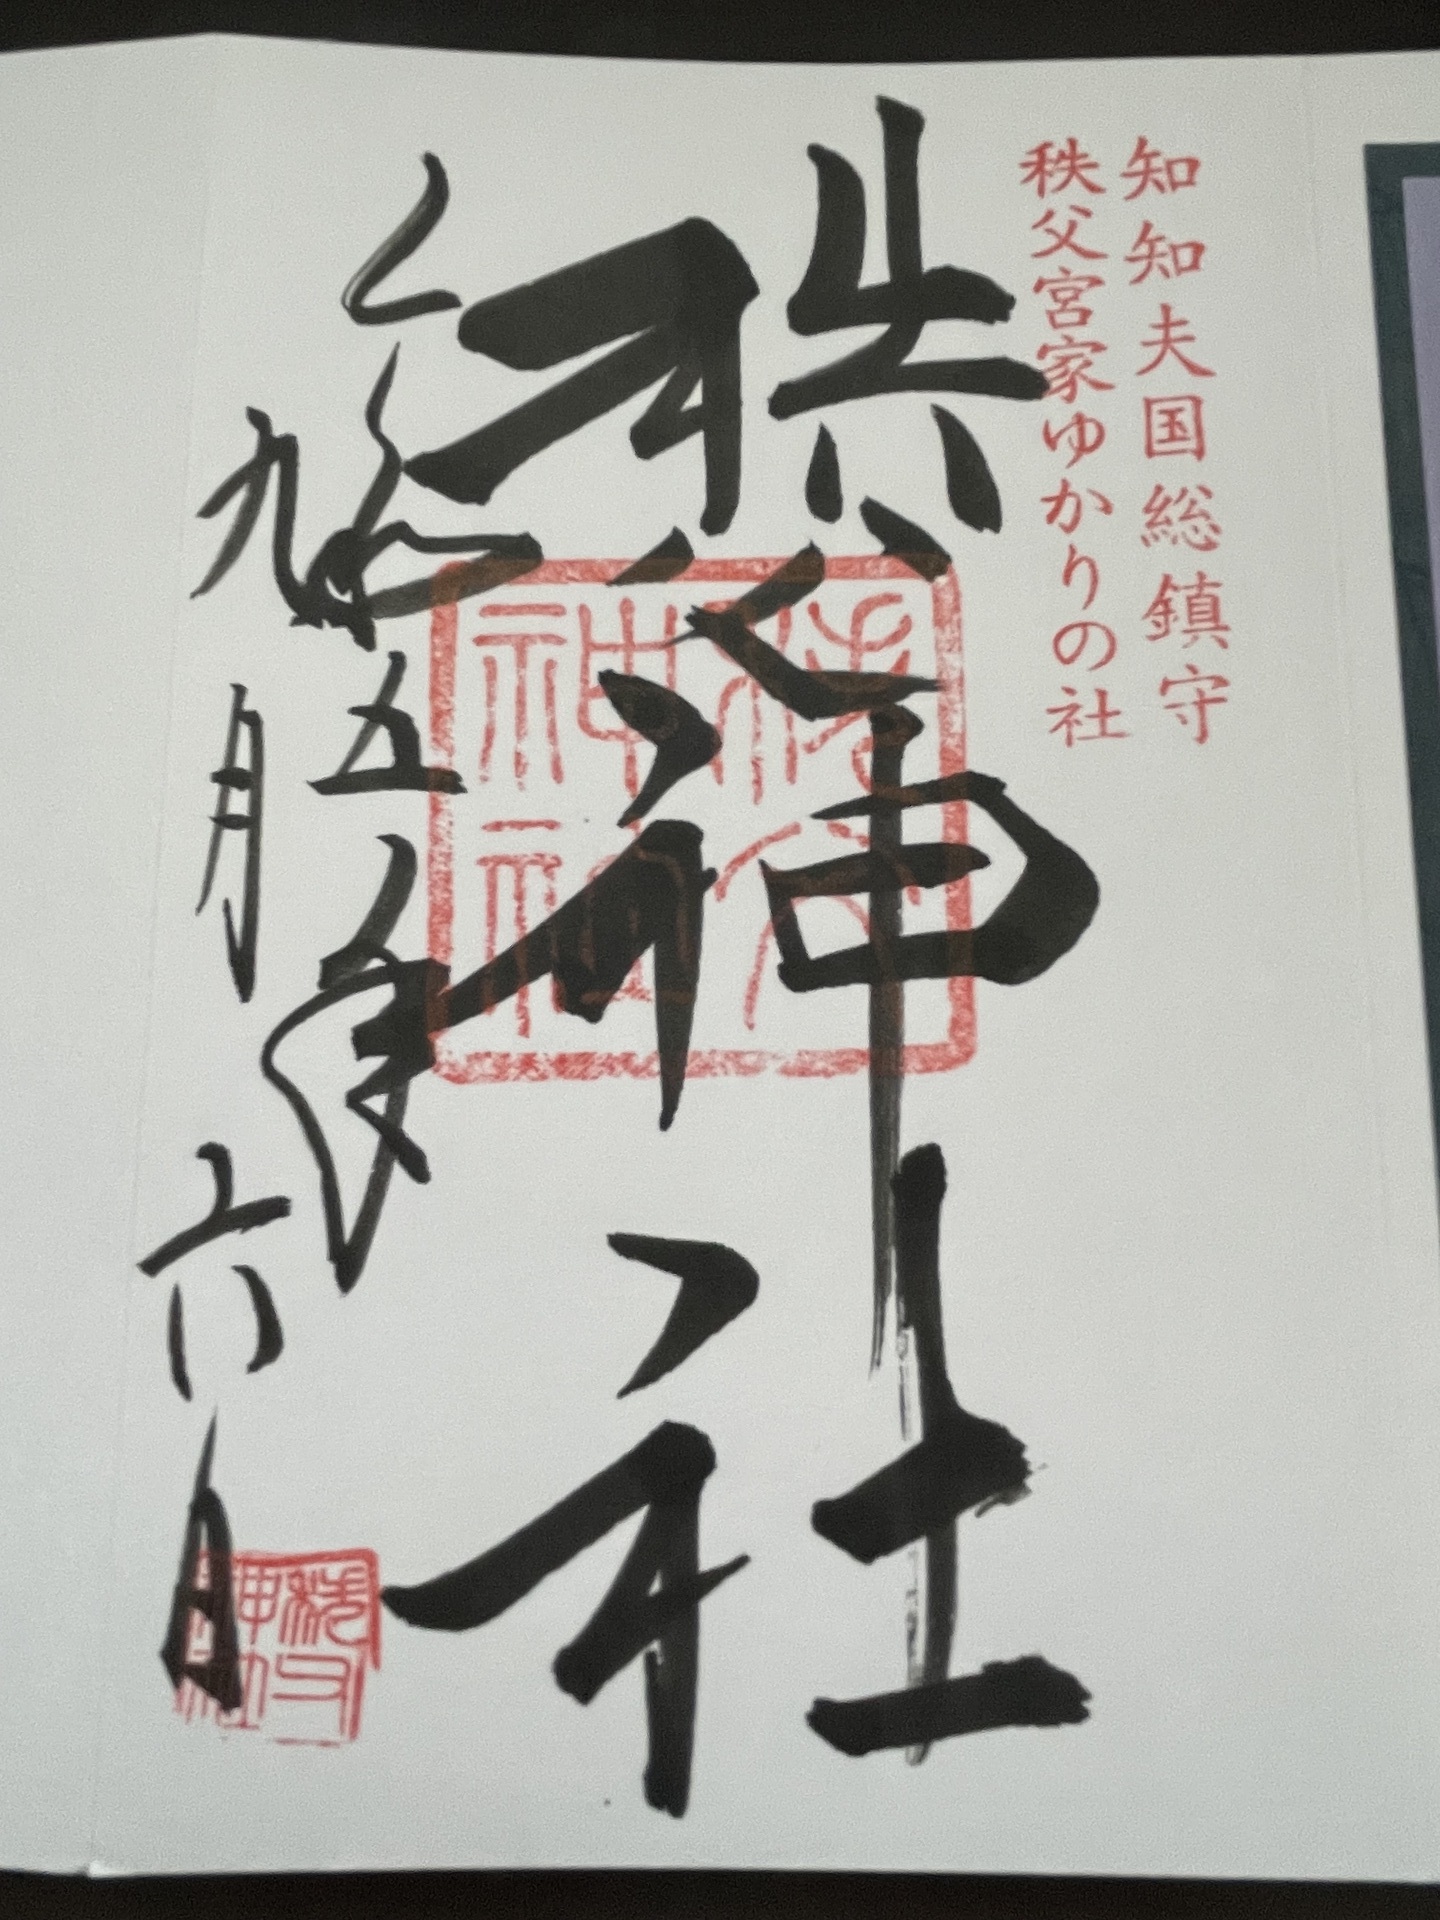 知知夫国総鎮守
秩父宮家ゆかりの社
秩父神社
令和五年
九月六日
秩父神社
秩父神社